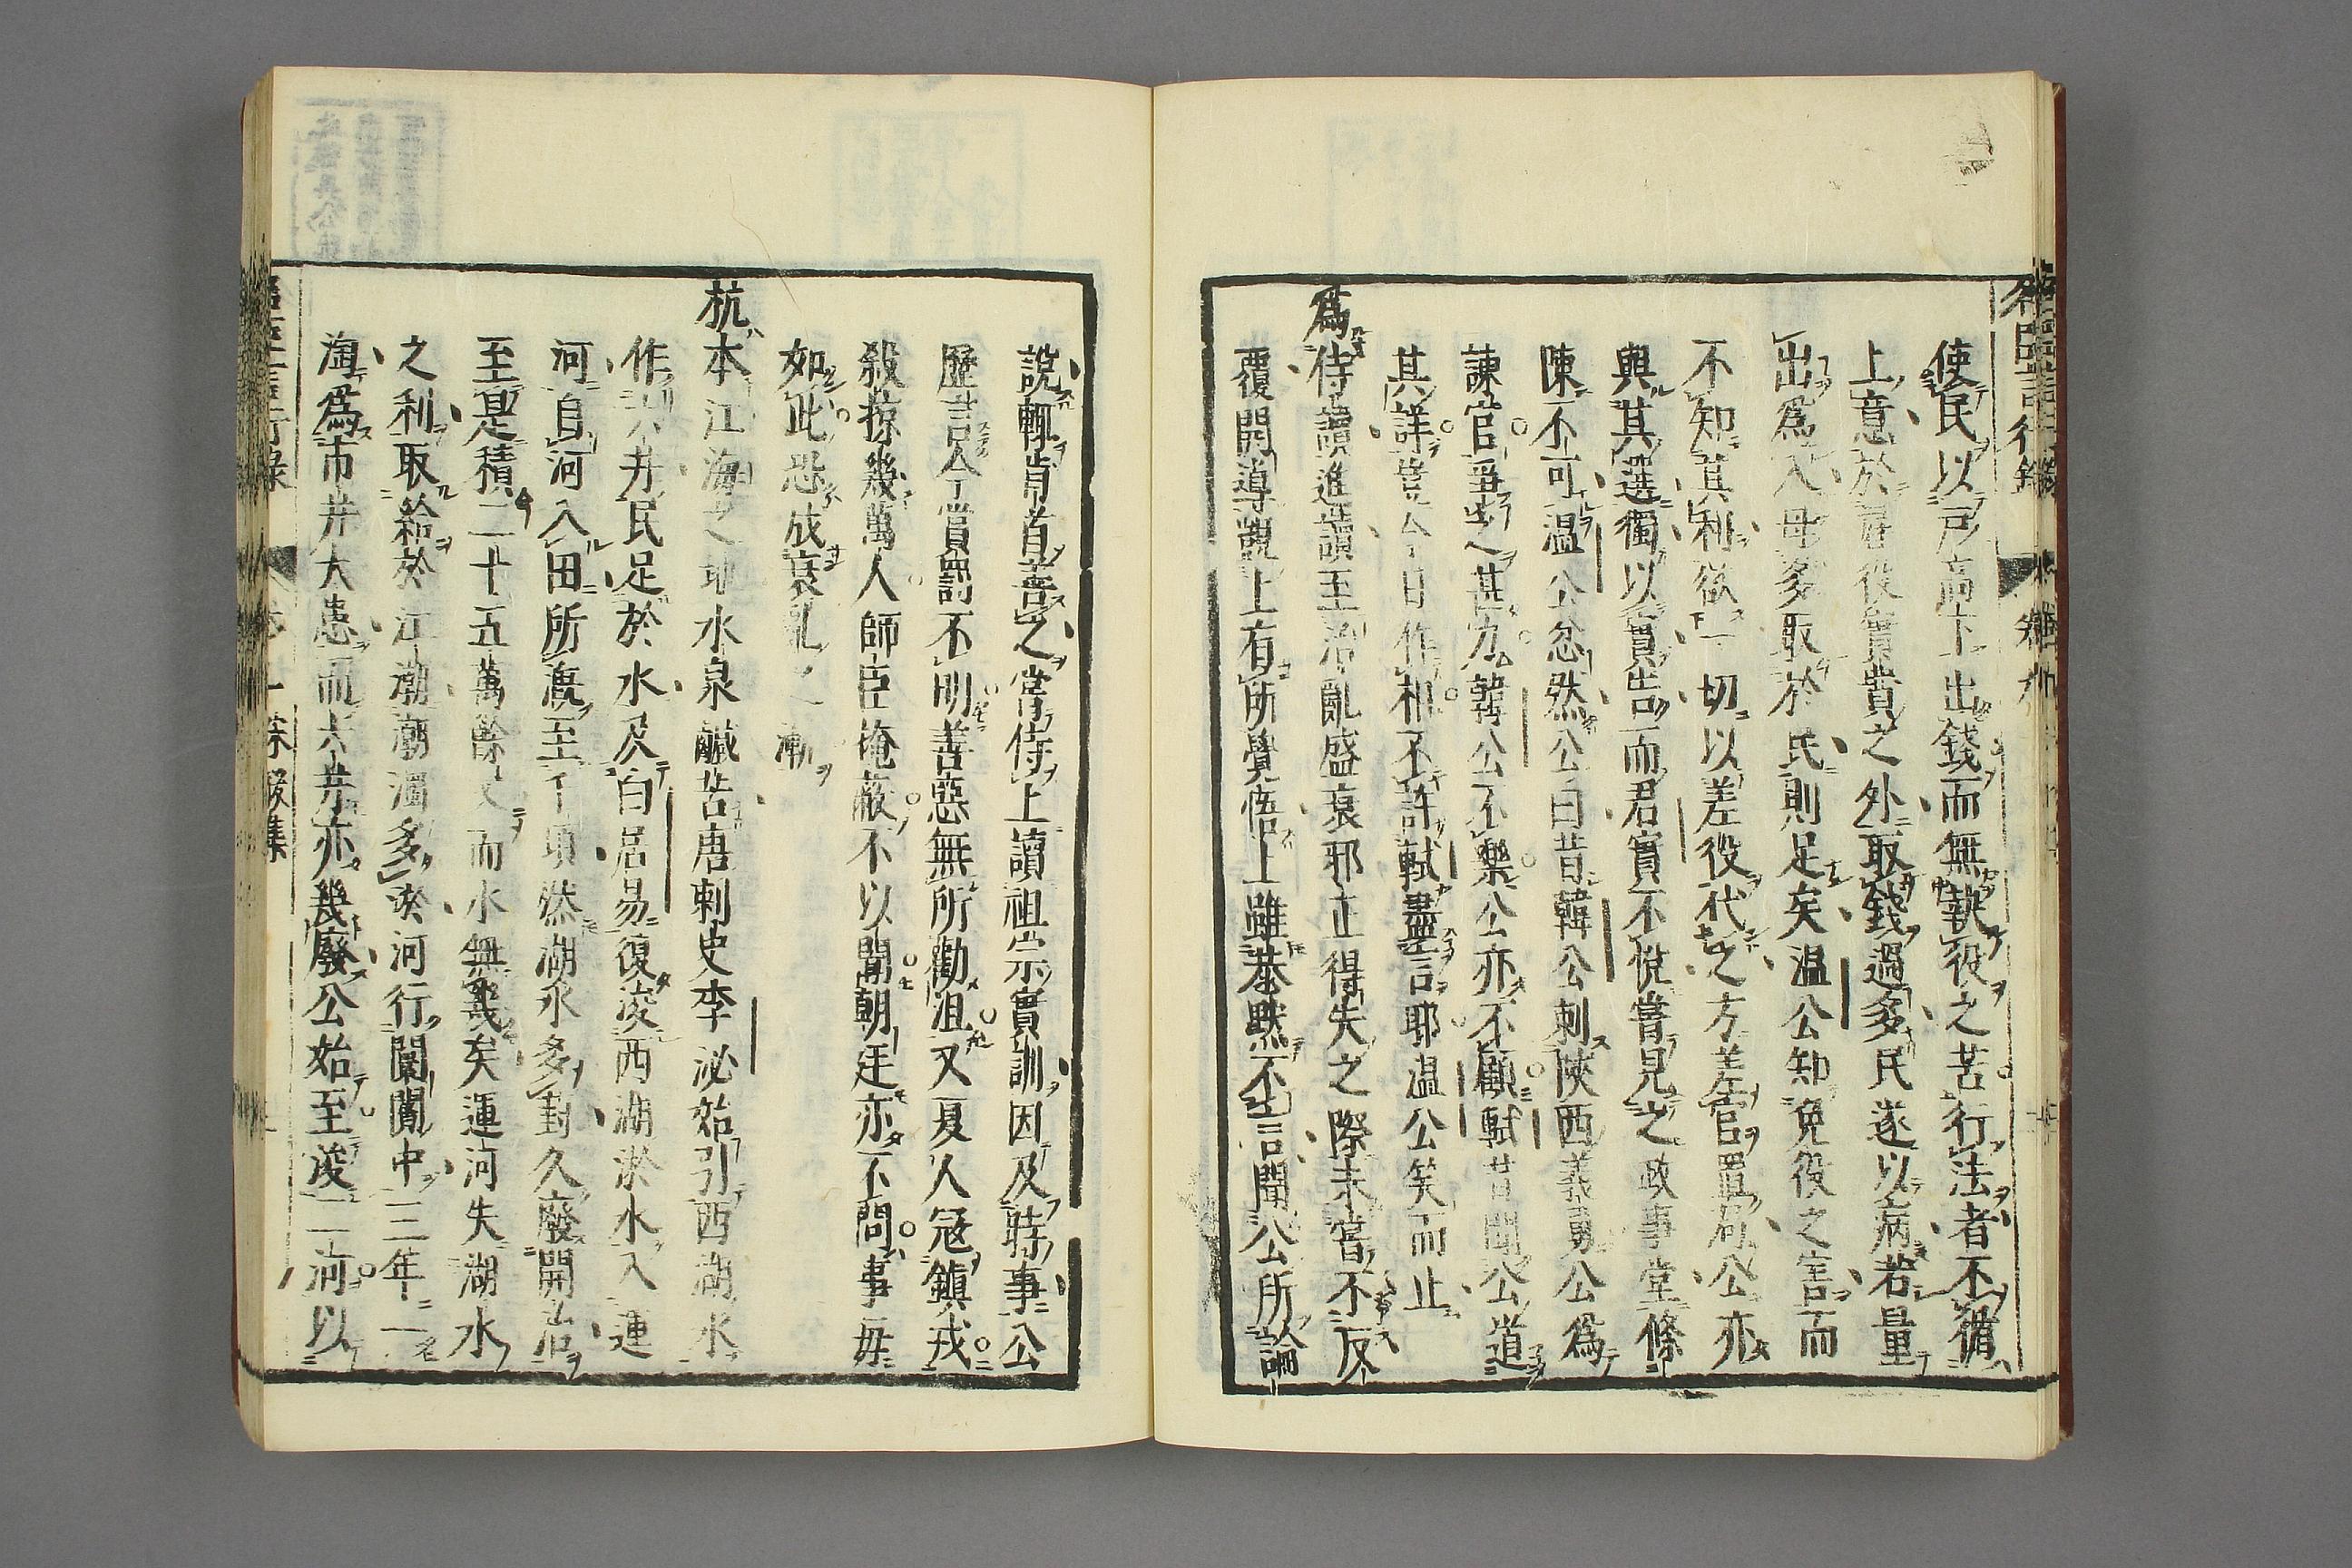 使民以戸高下出錢而無執役之苦行法者不循
上意於雇役實費之外取錢過多民遂以病若量
出爲入毋多取於民則足矣温公知免役之害而
不知其利欲一切以差役代之方差官置局公亦
與其選獨以實告而君實不悅嘗見之政事堂條
陳不可温公忿然公曰昔韓公刺陝西義勇公爲
諫官爭之甚力韓公不樂公亦不顧軾昔聞公道
其詳豈今日作相不許軾盡言耶温公笑而止
爲侍讀進讀至治亂盛衰邪正得失之際未嘗不反
覆開導覬上有所覺悟上雖恭默不言聞公所論
說輒肯首善之嘗侍上讀祖宗寶訓因及時事公
歷言今賞罰不明善惡無所勸沮又夏人冦鎮戎
殺掠幾萬人帥臣掩蔽不以聞朝廷亦不問事毎
如此恐成衰亂之漸
杭本江海之地水泉鹹苦唐刺史李泌始引西湖水
作六井民足於水及白居易復浚西湖淤水入運
河自河入田所漑至千頃然湖水多葑久廢開治
至是積二十五萬餘丈而水無幾矣運河失湖水
之利取給於江潮潮濁多淤河行闤闠中三年一
淘爲市井大患而六井亦幾廢公始至浚二河以